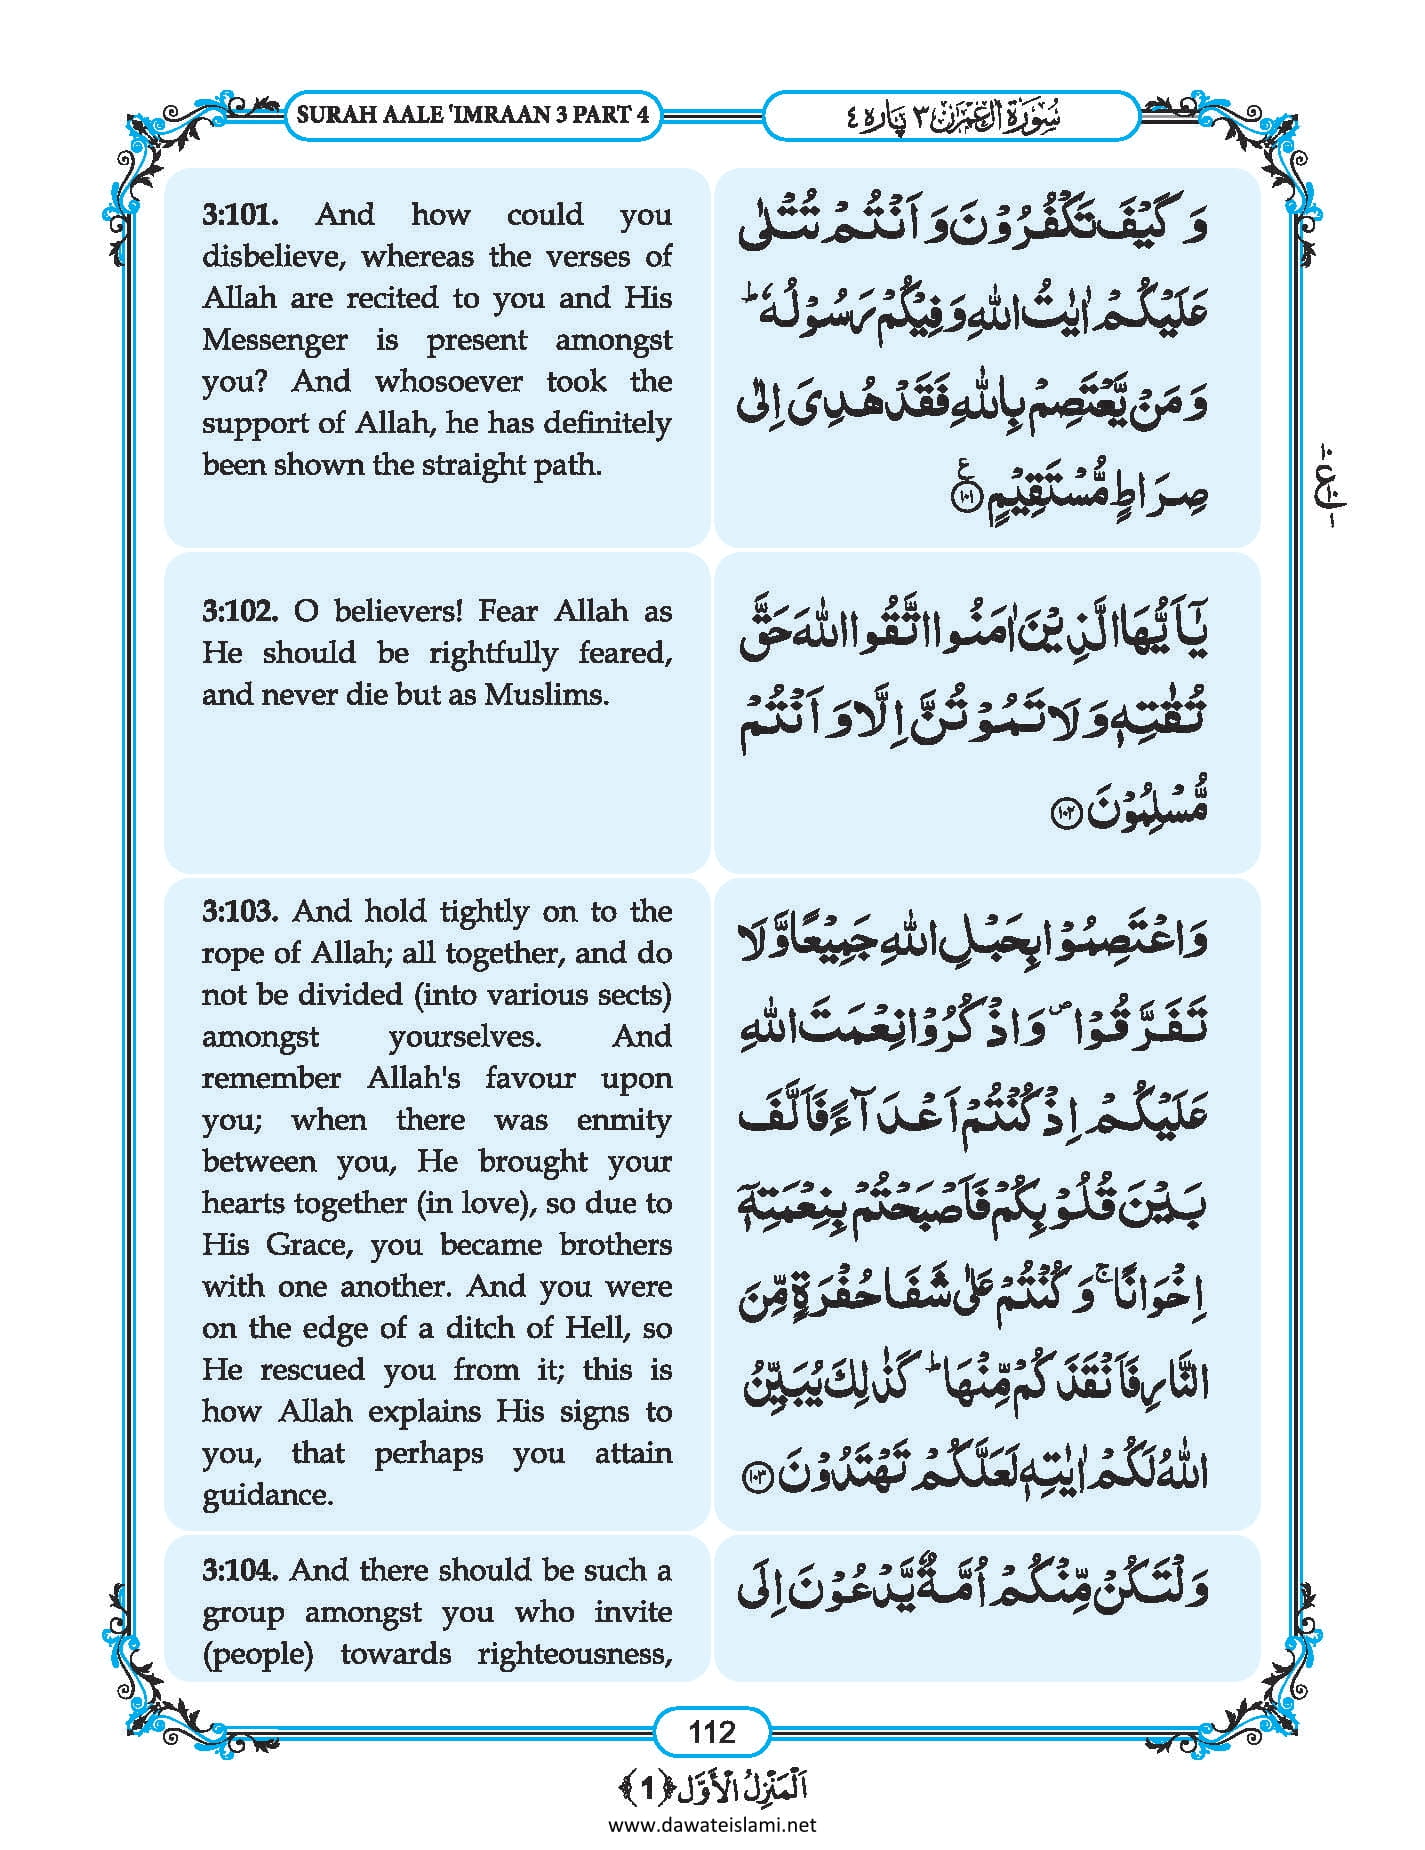 SURAH AALE 'IMRAAN 3 PART 4
سُوۡرَۃُ اٰلِ عِمْرٰن ٣ پَارَه ٤
3:101. And how could you
disbelieve, whereas the verses of
Allah are recited to you and His
Messenger is present amongst
you? And whosoever took the
support of Allah, he has definitely
been shown the straight path.
وَ كَيْفَ تَكْفُرُوْنَ وَ اَنْتُمْ تُتْلٰى
عَلَيْكُمْ اٰيٰتُ اللّٰهِ وَ فِيْكُمْ رَسُوْلُهٗ ؕ
وَ مَنْ يَّعْتَصِمْ بِاللّٰهِ فَقَدْ هُدِىَ اِلٰى
صِرَاطٍ مُّسْتَقِيْمٍ ﴿۱۰۱﴾ ع
3:102. O believers! Fear Allah as
He should be rightfully feared,
and never die but as Muslims.
يٰۤاَيُّهَا الَّذِيْنَ اٰمَنُوا اتَّقُوا اللّٰهَ حَقَّ
تُقٰتِهٖ وَ لَا تَمُوْتُنَّ اِلَّا وَ اَنْتُمْ
مُّسْلِمُوْنَ ﴿۱۰۲﴾
3:103. And hold tightly on to the
rope of Allah; all together, and do
not be divided (into various sects)
amongst yourselves. And
remember Allah's favour upon
you; when there was enmity
between you, He brought your
hearts together (in love), so due to
His Grace, you became brothers
with one another. And you were
on the edge of a ditch of Hell, so
He rescued you from it; this is
how Allah explains His signs to
you, that perhaps you attain
guidance.
وَاعْتَصِمُوْا بِحَبْلِ اللّٰهِ جَمِيْعًا وَّ لَا
تَفَرَّقُوْا ۪ وَ اذْكُرُوْا نِعْمَتَ اللّٰهِ
عَلَيْكُمْ اِذْ كُنْتُمْ اَعْدَآءً فَاَلَّفَ
بَيْنَ قُلُوْبِكُمْ فَاَصْبَحْتُمْ بِنِعْمَتِهٖۤ
اِخْوَانًا ۚ وَ كُنْتُمْ عَلٰى شَفَا حُفْرَةٍ مِّنَ
النَّارِ فَاَنْقَذَكُمْ مِّنْهَا ؕ كَذٰلِكَ يُبَيِّنُ
اللّٰهُ لَكُمْ اٰيٰتِهٖ لَعَلَّكُمْ تَهْتَدُوْنَ ﴿۱۰۳﴾
3:104. And there should be such a
group amongst you who invite
(people) towards righteousness,
وَلْتَكُنْ مِّنْكُمْ اُمَّةٌ يَّدْعُوْنَ اِلَى
112
اَلْمَنْزِلُ الْاَوَّل ﴿1﴾
www.dawateislami.net